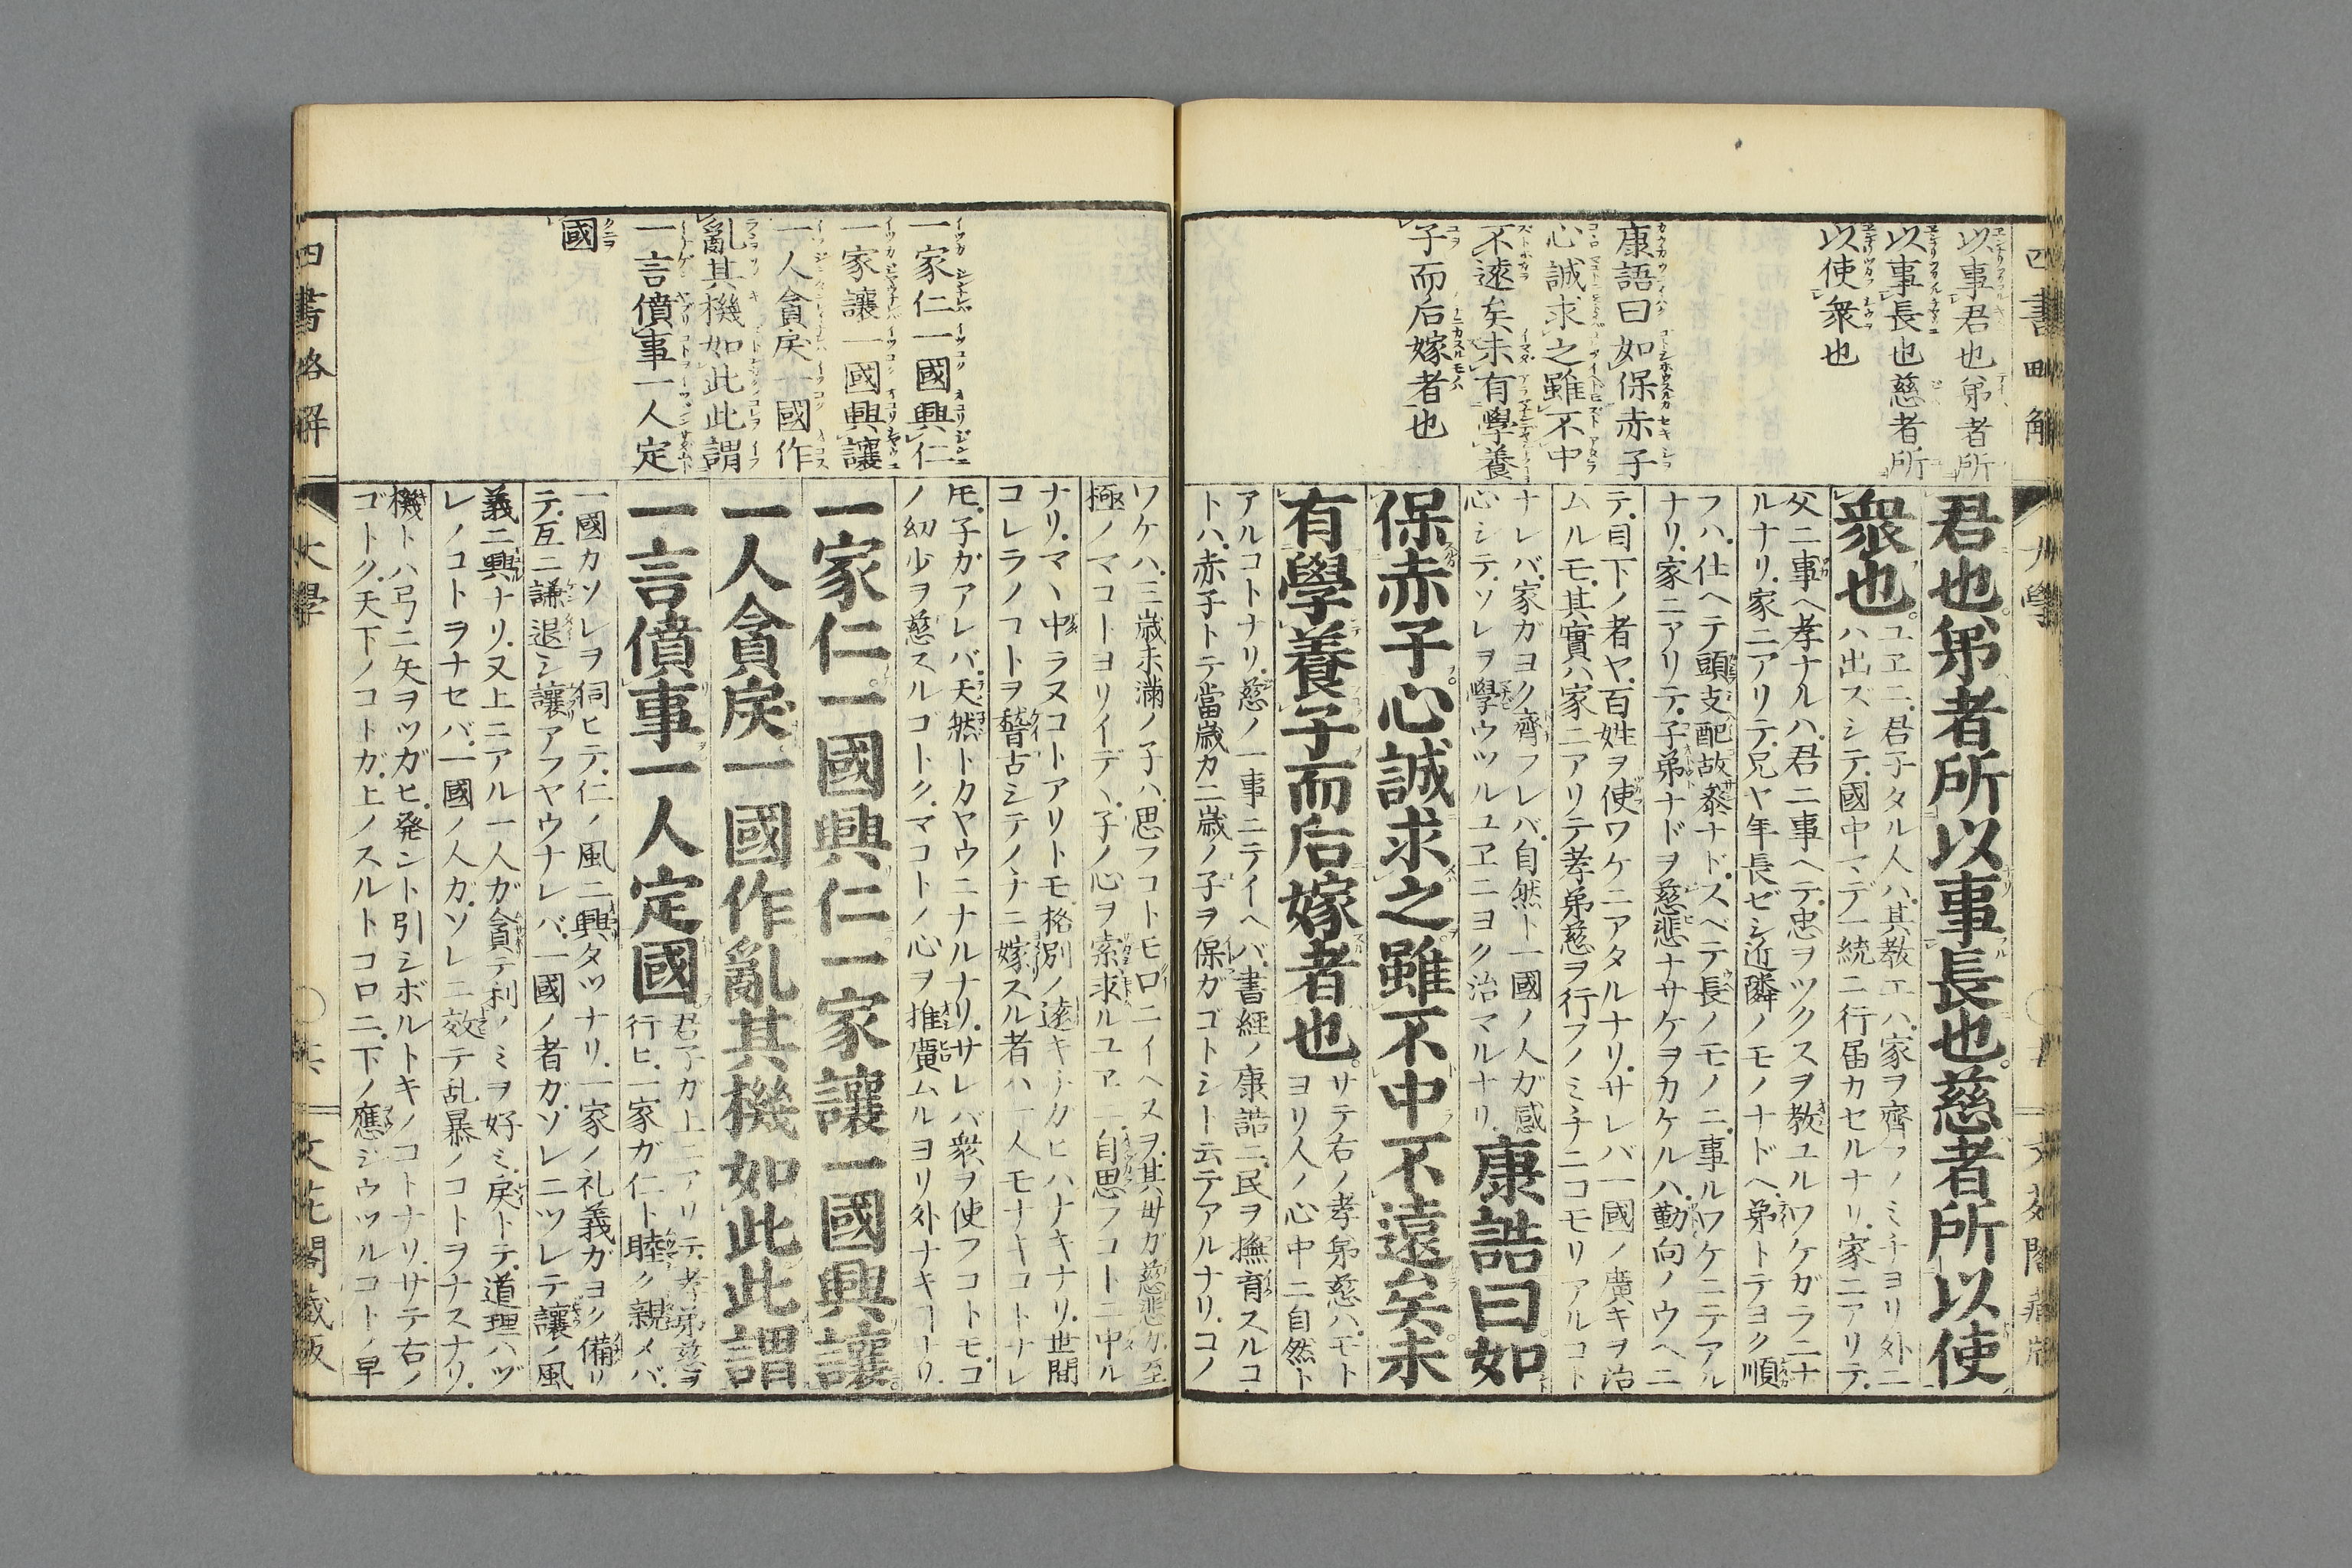 四書略解
大學
以事君也弟者所
以事長也慈者所
以使衆也
康誥曰如保赤子
心誠求之雖不中
不遠矣未有學養
子而后嫁者也
君也弟者所以事長也慈者所以使
衆也
ユヱニ君子タル人ハ其教エハ家ヲ齊フノミチヨリ外ニ
ハ出ズシテ國中マデ一統ニ行届カセルナリ家ニアリテ
父ニ事ヘ孝ナルハ君ニ事ヘテ忠ヲツクスヲ教ユルワケガラニナ
ルナリ家ニアリテ兄ヤ年長ゼシ近隣ノモノナドヘ弟トテヨク順
フハ仕ヘテ頭支配故参ナドスベテ長ノモノニ事ルワケニテアル
ナリ家ニアリテ子弟ナドヲ慈悲ナサケヲカケルハ勤向ノウヘニ
テ目下ノ者ヤ百姓ヲ使ワケニアタルナリサレバ一國ノ廣キヲ治
ムルモ其實ハ家ニアリテ孝弟慈ヲ行フノミチニコモリアルコト
ナレバ家ガヨク齊フレバ自然ト一國ノ人ガ感
心シテソレヲ學ウツルユヱニヨク治マルナリ
康誥曰如
保赤子心誠求之雖不中不遠矣未
有學養子而后嫁者也
サテ右ノ孝弟慈ハモト
ヨリ人ノ心中ニ自然ト
アルコトナリ慈ノ一事ニテイヘバ書經ノ康誥ニ民ヲ撫育スルコ
トハ赤子トテ當歳カ二歳ノ子ヲ保ガゴトシト云テアルナリコノ
一家仁一國興仁
一家讓一國興讓
一人貪戻一國作
亂其機如此此謂
一言僨事一人定
國
ワケハ三歳未滿ノ子ハ思フコトモ口ニイヘヌヲ其母ガ慈悲ガ至
極ノマコトヨリイデヽ子ノ心ヲ索求ルユヱ自思フコトニ中ル
ナリマヽ中ラヌコトアリトモ格別ノ遠キチカヒハナキナリ世間
コレラノコトヲ稽古シテノチニ嫁スル者ハ一人モナキコトナレ
モ子ガアレバ天然トカヤウニナルナリサレバ衆ヲ使フコトモコ
ノ幼少ヲ慈スルゴトクマコトノ心ヲ推廣ムルヨリ外ナキナリ
一家仁一國興仁一家讓一國興讓
一人貪戻一國作亂其機如此此謂
一言僨事一人定國
君子ガ上ニアリテ孝弟慈ヲ
行ヒ一家ガ仁ト睦ク親メバ
一國カソレヲ伺ヒテ仁ノ風ニ興タツナリ一家ノ礼義ガヨク備リ
テ互ニ謙退シ讓アフヤウナレバ一國ノ者ガソレニツレテ讓ノ風
義ニ興ナリ又上ニアル一人ガ貪テ利ノミヲ好ミ戻トテ道理ハヅ
レノコトヲナセバ一國ノ人ガソレニ效テ乱暴ノコトヲナスナリ
機トハ弓ニ矢ヲツガヒ発ント引シボルトキノコトナリサテ右ノ
ゴトク天下ノコトガ上ノスルトコロニ下ノ應ジウツルコトノ早
四書略解
大學
文苑閣藏版